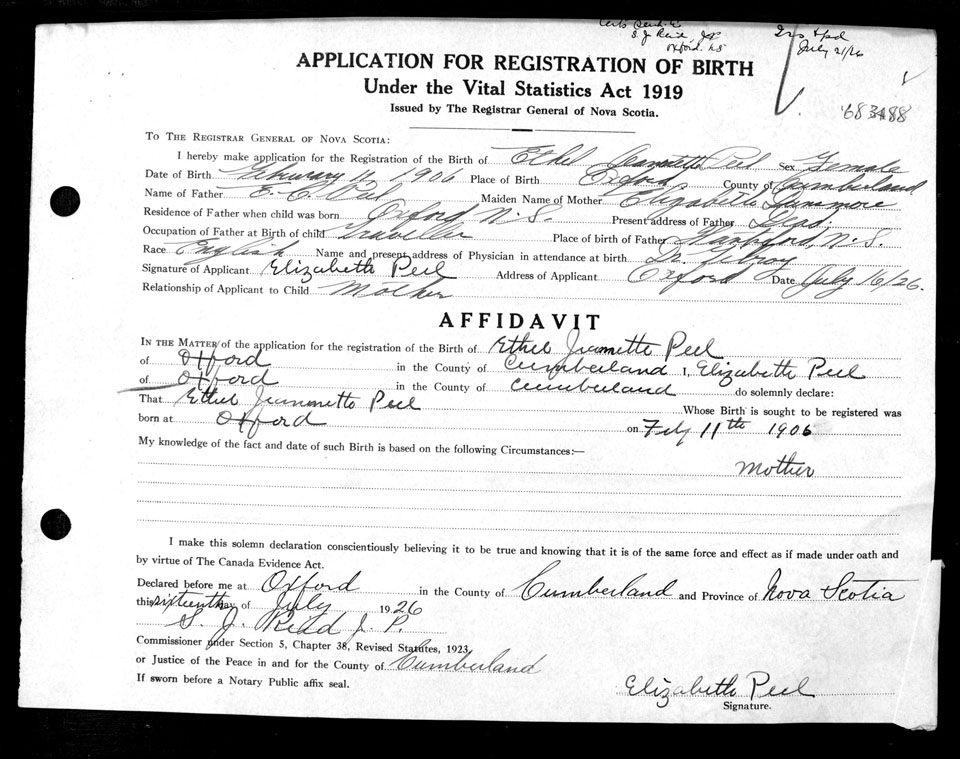 S. J. Reid J.P.
Oxford. N.S.
July 21/26
APPLICATION FOR REGISTRATION OF BIRTH
Under the Vital Statistics Act 1919
Issued by The Registrar General of Nova Scotia.
TO THE REGISTRAR GENERAL OF NOVA SCOTIA:
I hereby make application for the Registration of the Birth of Ethel Jeannette Peel Sex Female
Date of Birth February 11, 1906 Place of Birth Oxford County of Cumberland
Name of Father E. C. Peel Maiden Name of Mother Elizabeth
Residence of Father when child was born Oxford N.S. Present address of Father Dead.
Occupation of Father at Birth of child Traveller Place of birth of Father N.S.
Race English Name and present address of Physician in attendance at birth Dr.
Signature of Applicant Elizabeth Peel Address of Applicant Oxford Date July 16/26.
Relationship of Applicant to Child Mother
AFFIDAVIT
IN THE MATTER of the application for the registration of the Birth of Ethel Jeannette Peel
of Oxford in the County of Cumberland I, Elizabeth Peel
of Oxford in the County of Cumberland do solemnly declare:
That Ethel Jeannette Peel Whose Birth is sought to be registered was
born at Oxford on Feby 11th 1906
My knowledge of the fact and date of such Birth is based on the following Circumstances:—
Mother
I make this solemn declaration conscientiously believing it to be true and knowing that it is of the same force and effect as if made under oath and
by virtue of The Canada Evidence Act.
Declared before me at Oxford in the County of Cumberland and Province of Nova Scotia
this sixteenth day of July 1926
S. J. Reid J. P.
Commissioner under Section 5, Chapter 38, Revised Statutes, 1923,
or Justice of the Peace in and for the County of Cumberland
If sworn before a Notary Public affix seal.
Elizabeth Peel
Signature.